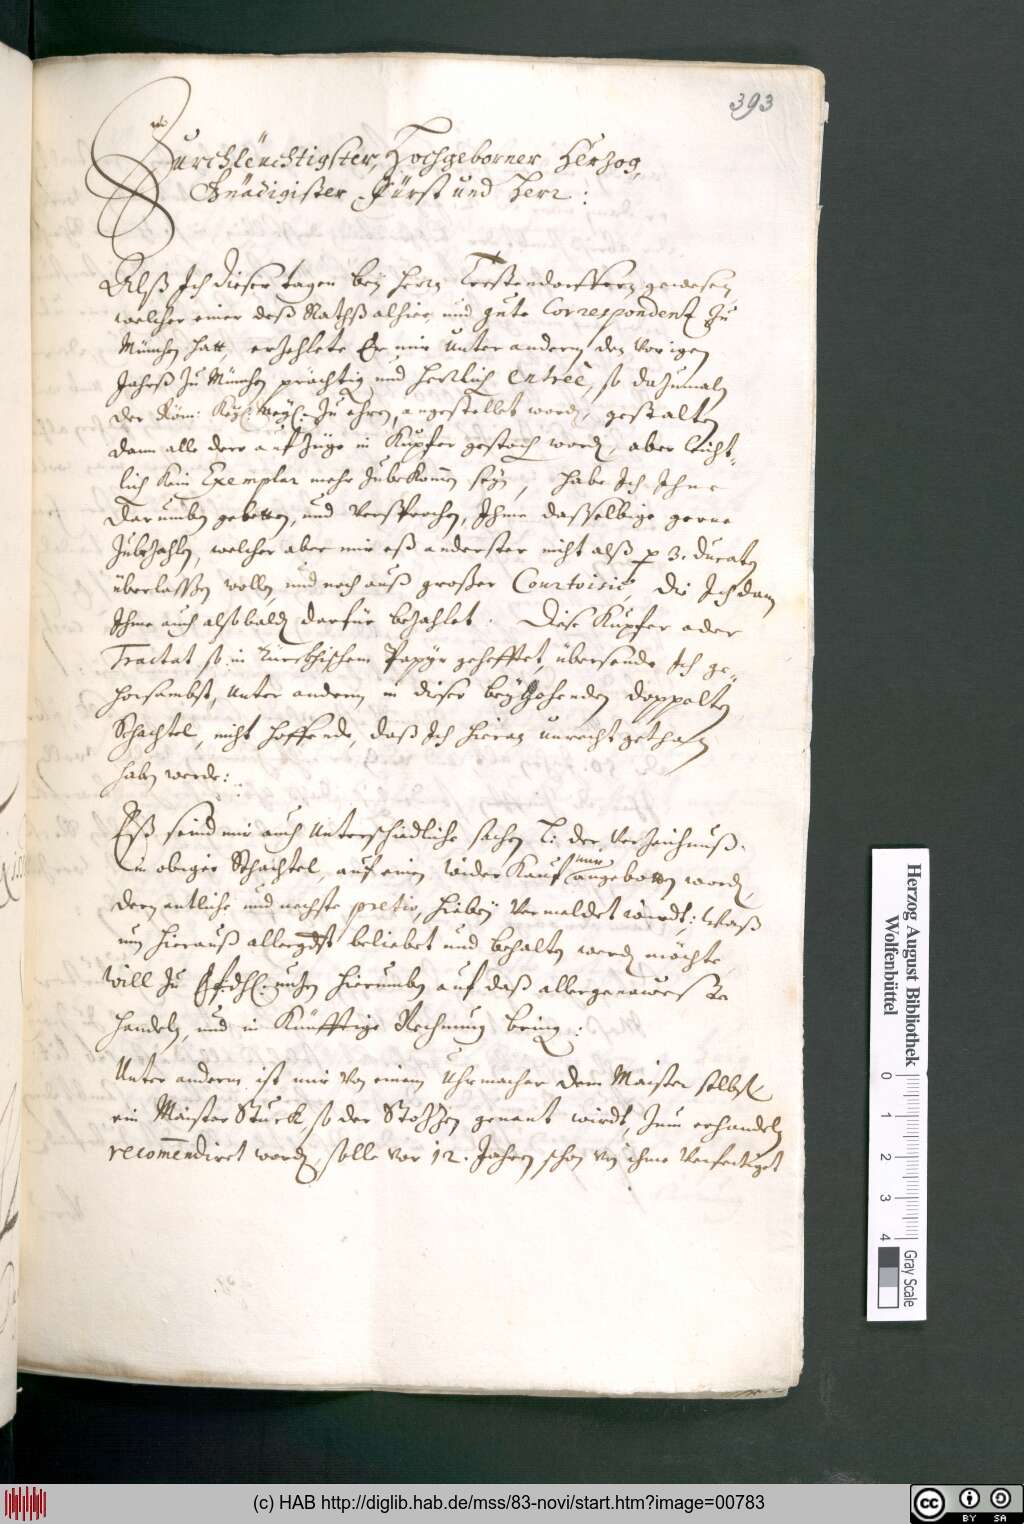 393
Durchleüchtigster, Hochgeborner Herzog,
Gnädigister Fürst und Herr:
Alß Ich dieser tagen beÿ Herrn gewesen
welcher einer deß Rathß alhier, und gute Correspondentz zu
München hatt, erzehlete Er mir unter anderm den vorigen
Jahrß zu München prächtig und herrlich entrée, so dazumaln
der Röm: Keÿ: Maÿ: zu Ehren, angestellet worden, gestalten
dann alle dere auf Züge in Kupfer gestoch worden, aber leicht-
lich kein Exemplar mehr zubekommen seÿe, habe Ich Ihne
darumben gebetten, und versprochen, Ihme dasselbige gerne
zubezahlen, welcher aber mir eß anderster nicht alß p 3. ducaten
überlassen wollen, und noch auß großer Courtoisie, die Ich dann
Ihme auch alsobalden darfür bezahlet. Diese Kupfer oder
Tractat so in Türckhischem Papÿr gehefftet, übersende Ich ge-
horsambst, unter anderm in dieser beÿgehenden doppelten
Schachtel, nicht hoffende, daß Ich hieran unrecht gethan
haben werde:
Eß seind mir auch unterschiedliche sachen L: der Verzeichnuß
in obiger Schachtel, auf einen wider Kauf nur angebotten worden,
deren entliche und nechste pretio, hiebeÿ vermeldet würdt; Waß
nun hierauß allergdst beliebet und behalten werden möchte
will zu hierumben auf daß allergenaweste
handeln, und in künfftige Rechnung bring:
Unter anderm ist mir von einem Uhrmacher dem Maister selbst
ein Maister Stuck, so der Stotzen genant wirdt, zum erhandeln
recommendiret worden, solle vor 12. Jahren schon von ihme verfertiget
Herzog August Bibliothek
Wolfenbüttel
0 1 2 3 4
Gray Scale
(c) HAB http://diglib.hab.de/mss/83-novi/start.htm?image=00783
cc BY SA